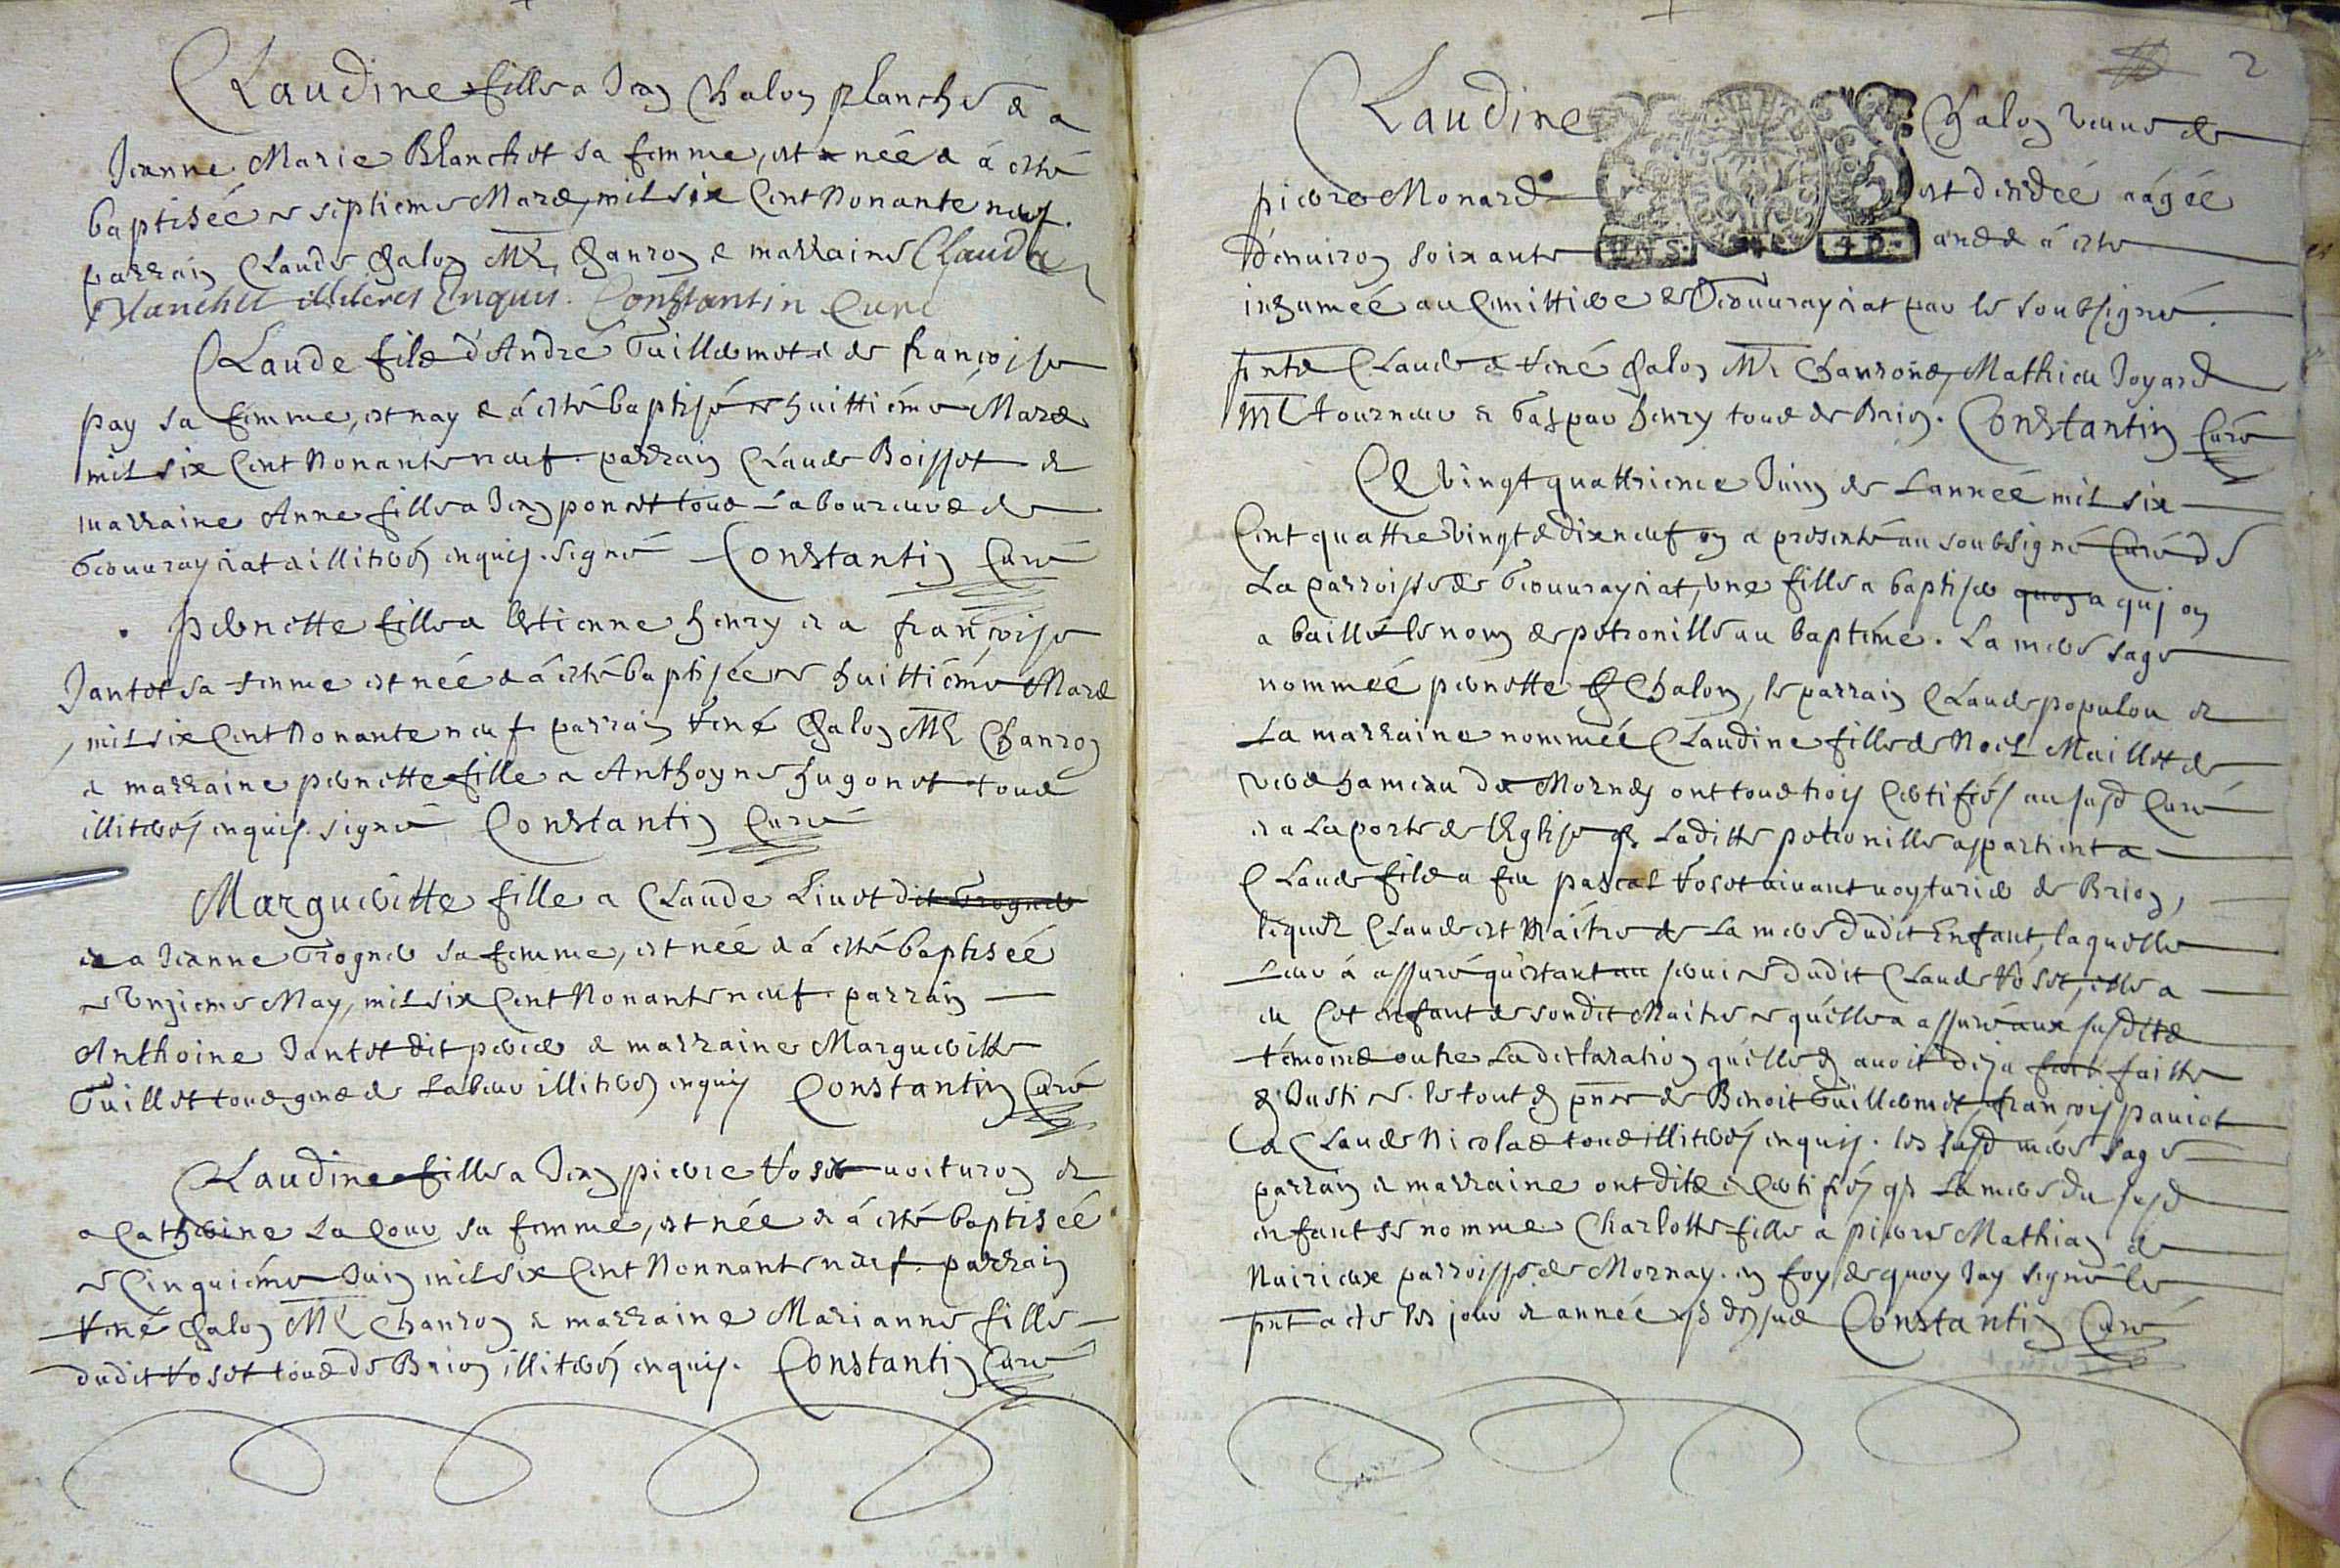 Claudine fille a Jean Chalon planche & a
Jeanne Marie Blanchet sa femme, est née & à esté
baptiséé le septieme Mars, mil six Cent Nonante neuf.
parrain Claude Chalon Mre Chanron & marraine Clauda
Blanchet illiteres Enquis. Constantin Curé
Claude fils d'André Guillermet & de françoise
pay sa femme, est nay & à esté baptisé le huittiéme Mars
mil six Cent Nonante neuf. parrain Claude Boisset &
marraine Anne fille a Jean poncet tous Laboureurs de
Geouurayssiat & illiterés enquis. signé Constantin Curé
pernette fille a Estienne henry et a françoise
Jantet sa femme est néé & à esté baptiséé le huittiéme Mars
mil six Cent Nonante neuf. parrain René Chalon Mre Chanron
& marraine pernette fille a Anthoyne hugonet tous
illiterés enquis. signé Constantin Curé
Marguerite fille a Claude Liuet dit Grognet
et a Jeanne Grognet sa femme, est néé & à esté baptiséé
le Unzieme May, mil six Cent Nonante neuf. parrain
Anthoine Jantet dit & marraine Marguerite
Guillet tous gens de Labeur illiterés enquis Constantin Curé
Claudine fille a Jean pierre Voset uoituron &
a Catherine La Cour sa femme, est néé & à esté baptiséé
le Cinquiéme Juin mil six Cent Nonnante neuf. parrain
René Chalon Mre Chanron & marraine Marianne fille
dudit Voset tous de Brion illiterés enquis. Constantin Curé
2
Claudine Chalon veuue de
pierre Monard est décédéé aágéé
d'enuiron soixante ans & à esté
inhuméé au Cimittiere de Geouurayssiat par le soubsigné.
pntz Claude & René Chalon Mre Chanrons, Mathieu Joyard
Mre tourneur & Gaspar henry tous de Brion. Constantin Curé
Ce vingt quattrieme Juin de L'annéé mil six
Cent quattre vingt & dix neuf on a presenté au soubsigné Curé de
La parroisse de Geouurayssiat, vne fille a baptiser a qui on
a baillé le nom de petronille au baptéme. La mere sage
nomméé pernette Chalon, le parrain Claude populou &
La marraine nomméé Claudine fille de Noel Maillet de
hameau de Mornay ont tous trois Certifiés au susd Curé
et a La porte de l'Eglise q. Laditte petronille appartient a
Claude fils a feu pascal Voset uiuant uoyturier de Brion,
lequel Claude est Maitre de La mere dudit Enfant, laquelle
Leur à assuré qu'estant au seruice dudit Claude Voset, elle a
eu Cet enfant de sondit Maitre ce qu'elle a assuré aux susdits
témoins outre La declaration qu'elle en auoit deja faitte
en Justice. le tout en pnce de Benoit Guillermet, françois pauiot
& Claude Nicolas tous illiterés enquis. les susd mere sage
parrain & marraine ont dits & Certifiés q. La mere du susd
enfant se nomme Charlotte fille a pierre Mathian de
Nairieux parroisse de Mornay. en foy de quoy J'ay signé le
pnt acte les jour & annéé q. dessus Constantin Curé